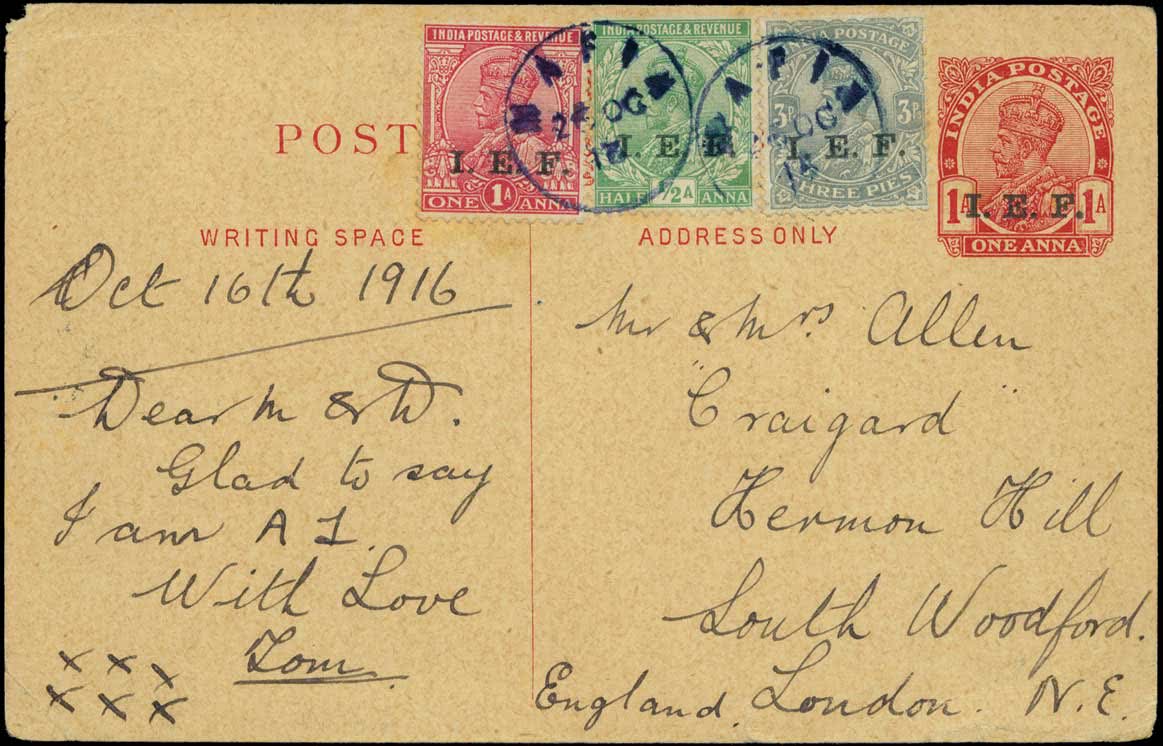 INDIA POSTAGE & REVENUE
I. E. F.
ONE 1A ANNA
INDIA POSTAGE & REVENUE
I. E. F.
HALF 1/2A ANNA
INDIA POSTAGE
3P 3P
I. E. F.
THREE PIES
INDIA POSTAGE
1A I. E. F. 1A
ONE ANNA
MAFIA
OC
MAFIA
OC
POST
WRITING SPACE
Oct 16th 1916
Dear M & D.
Glad to say
I am A 1.
With Love
Tom
x x x
x x x
ADDRESS ONLY
Mr & Mrs Allen
"Craigard"
Hermon Hill
South Woodford.
England. London. N.E.